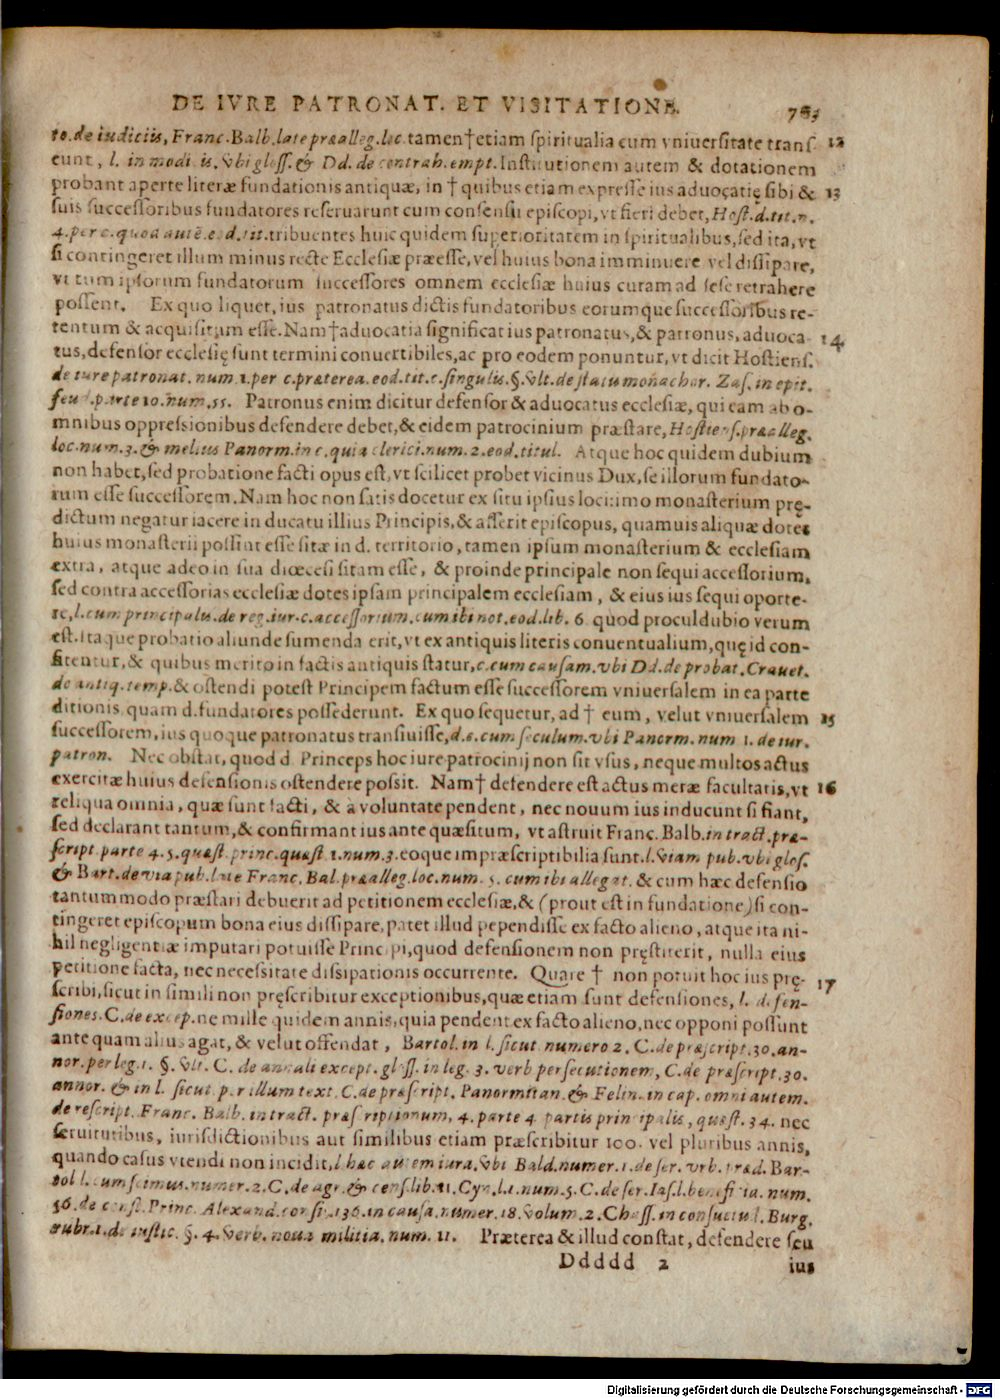 DE IVRE PATRONAT. ET VISITATIONE.
to. de iudiciis, Franc. Balb. late præalleg. loc. tamen † etiam spiritualia cum vniuersitate trans- 12
eunt, l. in modi is. vbi gloss. & Dd. de contrah. empt. Institutionem autem & dotationem
probant aperte literæ fundationis antiquæ, in † quibus etiam expresse ius aduocatię sibi & 13
suis successoribus fundatores reseruarunt cum consensu episcopi, vt fieri debet, Host. d. tit. n.
4. per c. quoa autē. eod. tit. tribuentes huic quidem superioritatem in spiritualibus, sed ita, vt
si contingeret illum minus recte Ecclesiæ præesse, vel huius bona imminuere vel dissipare,
vt tum ipsorum fundatorum successores omnem ecclesiæ huius curam ad sese retrahere
possent. Ex quo liquet, ius patronatus dictis fundatoribus eorumque successoribus re-
tentum & acquisitum esse. Nam † aduocatia significat ius patronatus, & patronus, aduoca- 14
tus, defensor ecclesię sunt termini conuertibiles, ac pro eodem ponuntur, vt dicit Hostiens.
de iure patronat. num. 1. per c. præterea. eod. tit. c. singulis. §. vlt. de statu monachor. Zas. in epit.
feud. parte 10. num. 55. Patronus enim dicitur defensor & aduocatus ecclesiæ, qui eam ab o-
mnibus oppressionibus defendere debet, & eidem patrocinium præstare, Hostiens. præalleg.
loc. num. 3. & melius Panorm. in c. quia clerici. num. 2. eod. titul. Atque hoc quidem dubium
non habet, sed probatione facti opus est, vt scilicet probet vicinus Dux, se illorum fundato-
rum esse successorem. Nam hoc non satis docetur ex situ ipsius loci: imo monasterium prę-
dictum negatur iacere in ducatu illius Principis, & asserit episcopus, quamuis aliquæ dotes
huius monasterii possint esse sitæ in d. territorio, tamen ipsum monasterium & ecclesiam
extra, atque adeo in sua diœcesi sitam esse, & proinde principale non sequi accessorium,
sed contra accessorias ecclesiæ dotes ipsam principalem ecclesiam, & eius ius sequi oporte-
re, l. cum principalis. de reg. iur. c. accessorium. cum ibi not. eod. lib. 6. quod proculdubio verum
est. Itaque probatio aliunde sumenda erit, vt ex antiquis literis conuentualium, quę id con-
fitentur, & quibus merito in factis antiquis statur, c. cum causam. vbi Dd. de probat. Crauet.
de antiq. temp. & ostendi potest Principem factum esse successorem vniuersalem in ea parte
ditionis quam d. fundatores possederunt. Ex quo sequetur, ad † eum, velut vniuersalem 15
successorem, ius quoque patronatus transiuisse, d. c. cum seculum. vbi Panorm. num 1. de iur.
patron. Nec obstat, quod d. Princeps hoc iure patrocinij non sit vsus, neque multos actus
exercitæ huius defensionis ostendere possit. Nam † defendere est actus meræ facultatis, vt 16
reliqua omnia, quæ sunt facti, & à voluntate pendent, nec nouum ius inducunt si fiant,
sed declarant tantum, & confirmant ius ante quæsitum, vt astruit Franc. Balb. in tract. præ-
script. parte 4. 5. quæst. princ. quæst 1. num. 3. eoque impræscriptibilia sunt. l. viam pub. vbi glos.
& Bart. de via pub. late Franc. Bal. præalleg. loc. num. 5. cum ibi allegat. & cum hæc defensio
tantummodo præstari debuerit ad petitionem ecclesiæ, & (prout est in fundatione) si con-
tingeret episcopum bona eius dissipare, patet illud pependisse ex facto alieno, atque ita ni-
hil negligentiæ imputari potuisse Principi, quod defensionem non pręstiterit, nulla eius
petitione facta, nec necessitate dissipationis occurrente. Quare † non potuit hoc ius prę- 17
scribi, sicut in simili non pręscribitur exceptionibus, quæ etiam sunt defensiones, l. defen-
siones. C. de excep. ne mille quidem annis, quia pendent ex facto alieno, nec opponi possunt
ante quam alius agat, & velut offendat, Bartol. in l. sicut. numero 2. C. de præscript. 30. an-
nor. per leg. 1. §. vlt. C. de annali except. gloss. in leg. 3. verb persecutionem, C. de præscript. 30.
annor. & in l. sicut. per illum text. C. de præscript. Panormitan. & Felin. in cap. omni autem.
de rescript. Franc. Balb. in tract. præscriptionum, 4. parte 4 partis principalis, quæst. 34. nec
seruitutibus, iurisdictionibus aut similibus etiam præscribitur 100. vel pluribus annis,
quando casus vtendi non incidit, l. hæc autem iura. vbi Bald. numer. 1. de ser. vrb. præd. Bar-
tol l. cum scimus. numer. 2. C. de agr. & cens. lib. 11. Cyn. l. 1. num. 5. C. de ser. Ias. l. beneficia. num.
56. de const. Princ. Alexand. consi. 136. in causa. numer. 18. volum. 2. Chass. in consuetud. Burg.
rubr. 1. de iustic. §. 4. verb. noua militia. num. 11. Præterea & illud constat, defendere seu
Ddddd 2 ius
Digitalisierung gefördert durch die Deutsche Forschungsgemeinschaft - DFG